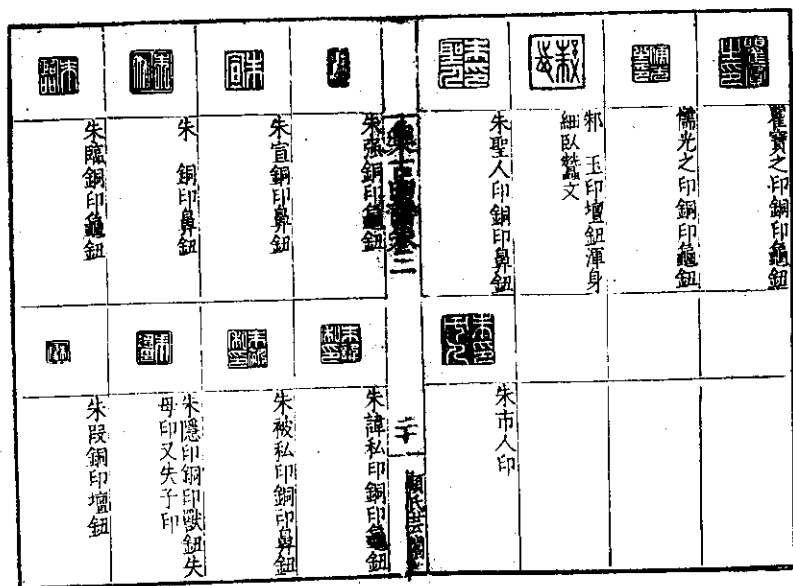 瞿寶之印銅印龜鈕
儒光之印銅印龜鈕
邾　玉印壇鈕渾身
細臥蠶文
朱聖人印銅印鼻鈕
朱市人印
集古印譜卷二
二十
顧氏芸閣
朱强銅印龜鈕
朱宣銅印鼻鈕
朱　銅印鼻鈕
朱臨銅印龜鈕
朱諱私印銅印龜鈕
朱被私印銅印鼻鈕
朱隱印銅印獸鈕失
母印又失子印
朱叚銅印壇鈕